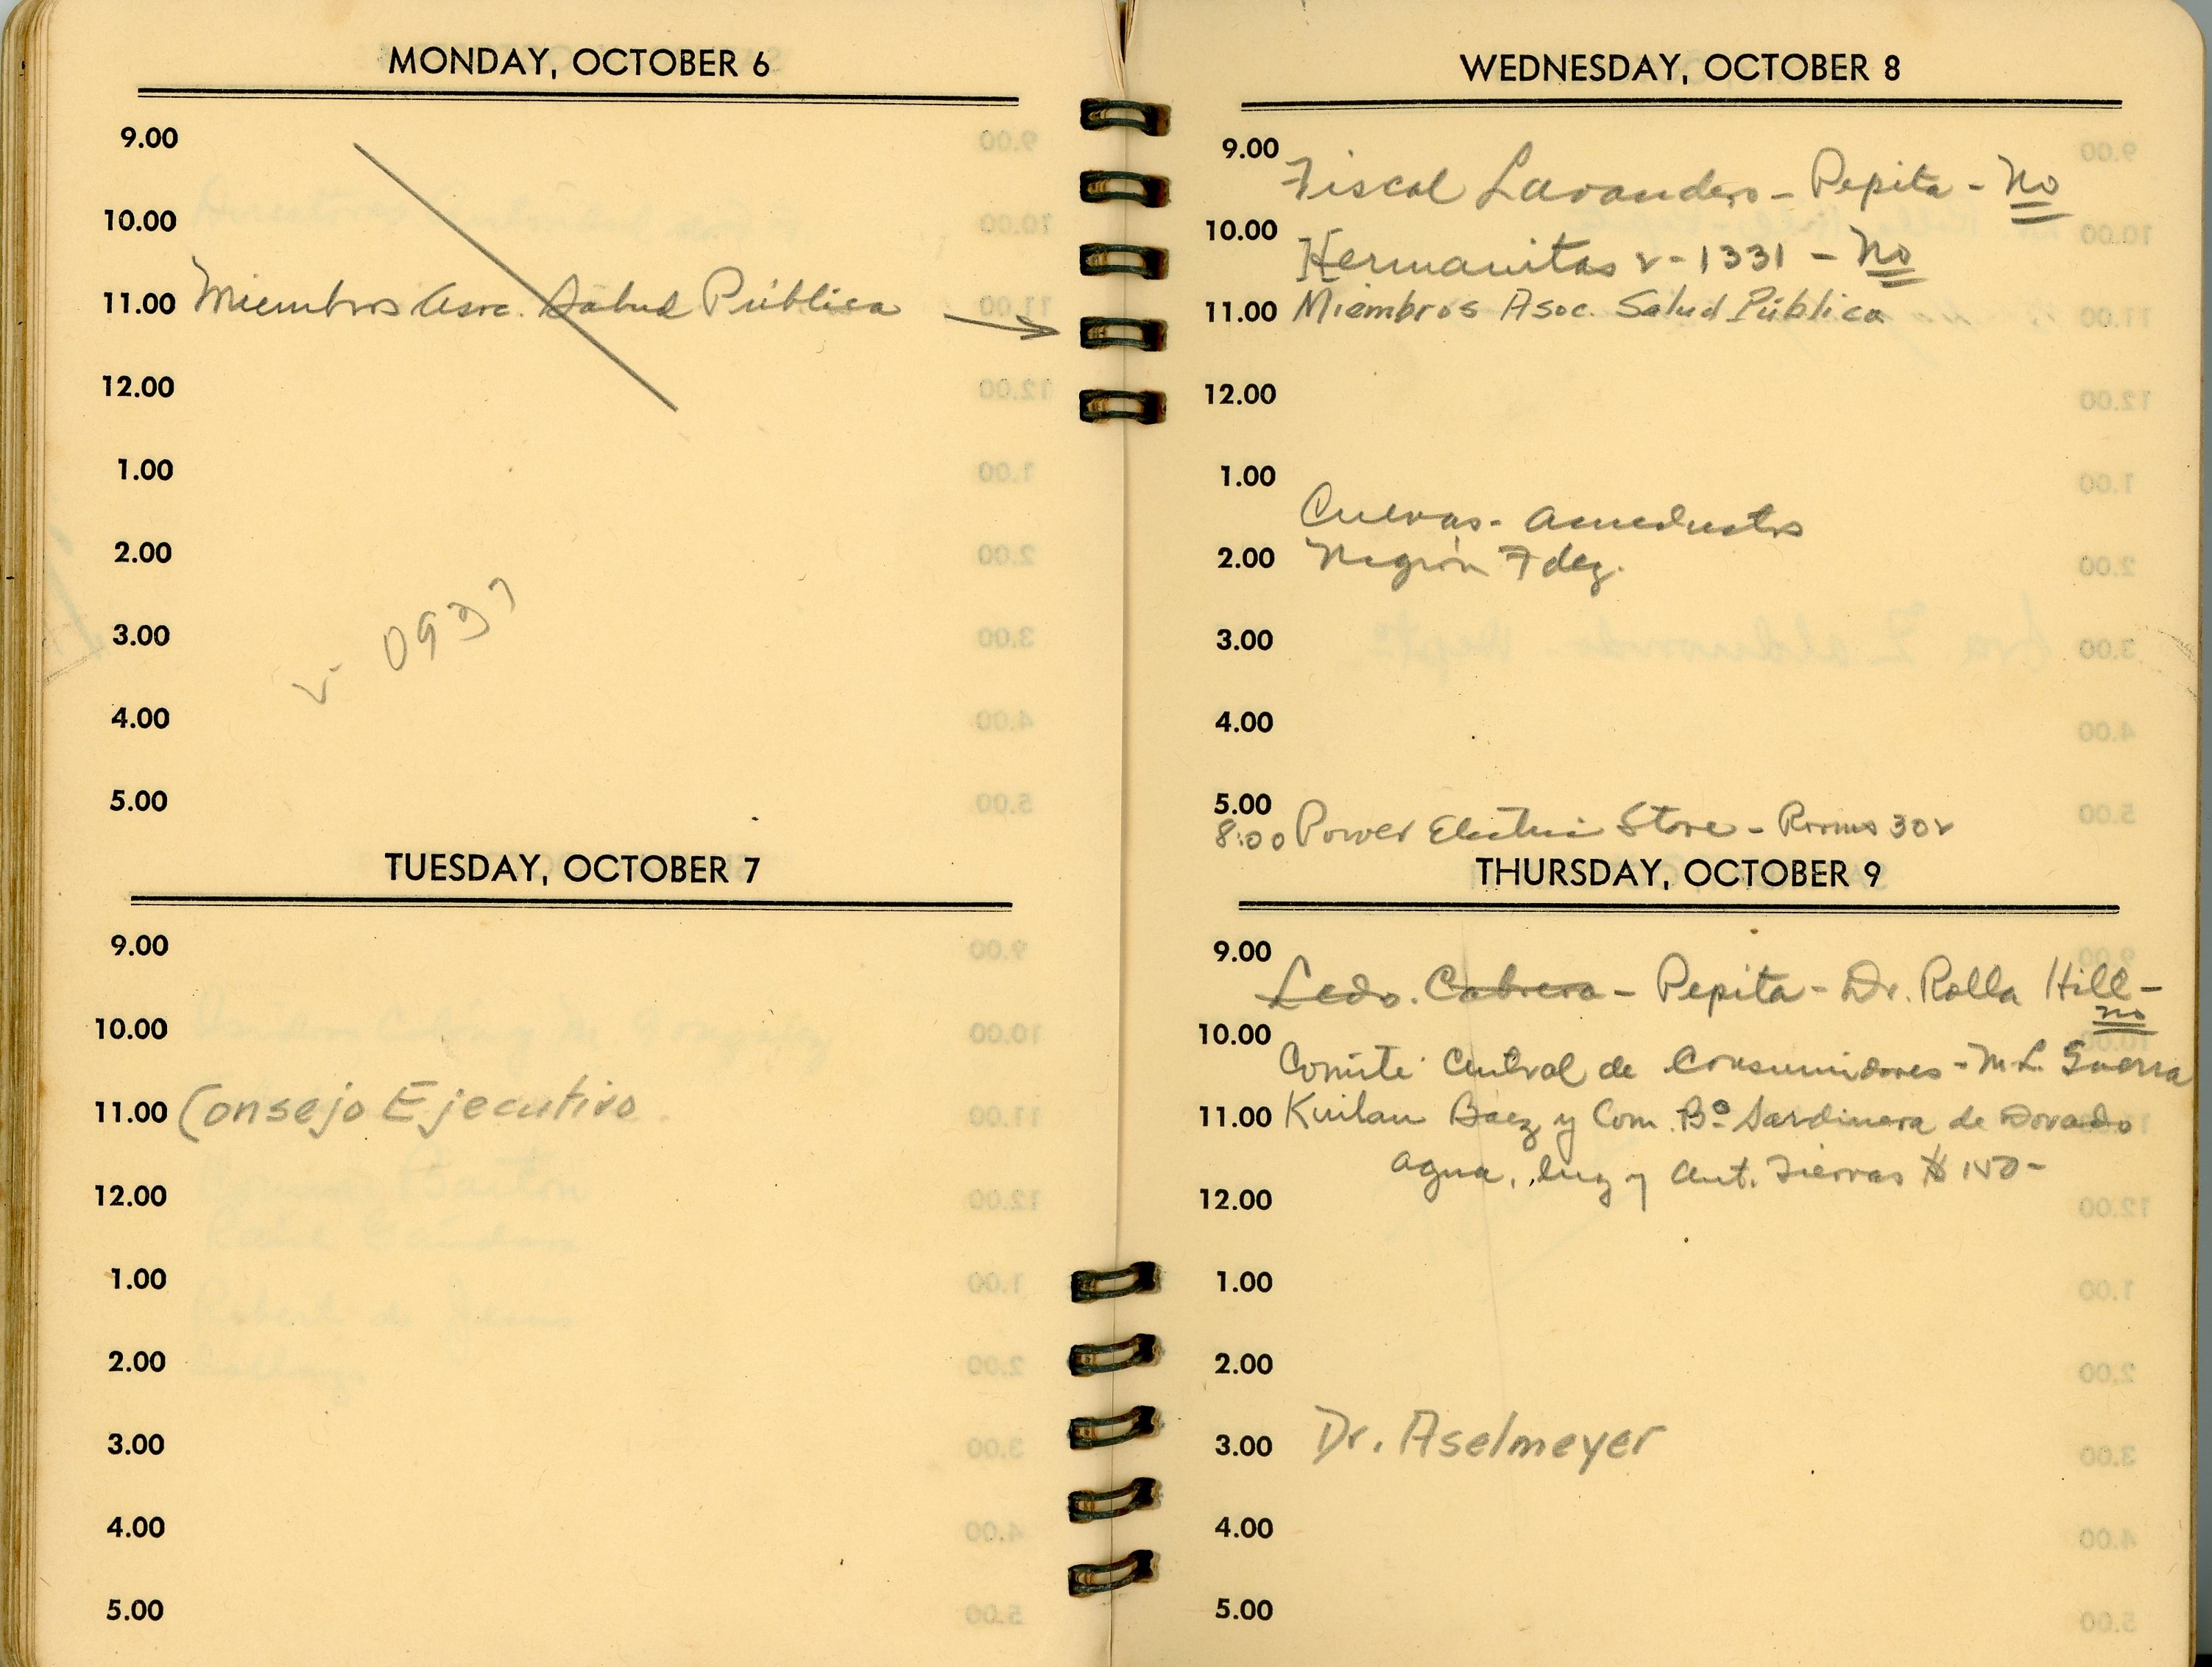 MONDAY, OCTOBER 6
9.00
10.00
11.00 Miembros Asoc. Salud Pública
12.00
1.00
2.00
3.00
4.00
5.00
TUESDAY, OCTOBER 7
9.00
10.00
11.00 Consejo Ejecutivo
12.00
1.00
2.00
3.00
4.00
5.00
WEDNESDAY, OCTOBER 8
9.00
Fiscal Lavandero - Pepita - No
10.00
Hermanitas 2-1331 - No
11.00 Miembros Asoc. Salud Pública
12.00
1.00
Cuevas - Acueductos
2.00 Negrón Fdez.
3.00
4.00
5.00
8:00 Power Electric Store - Rooms 302
THURSDAY, OCTOBER 9
9.00
Ledo. Cabrera - Pepita - Dr. Rolla Hill -
no
10.00
Comité Central de Consumidores - M. L. Guerra
11.00 Kuilan Báez y Com. Bº Sardinera de Dorado
agua, luz y Aut. Tierras $150-
12.00
1.00
2.00
3.00 Dr. Aselmeyer
4.00
5.00